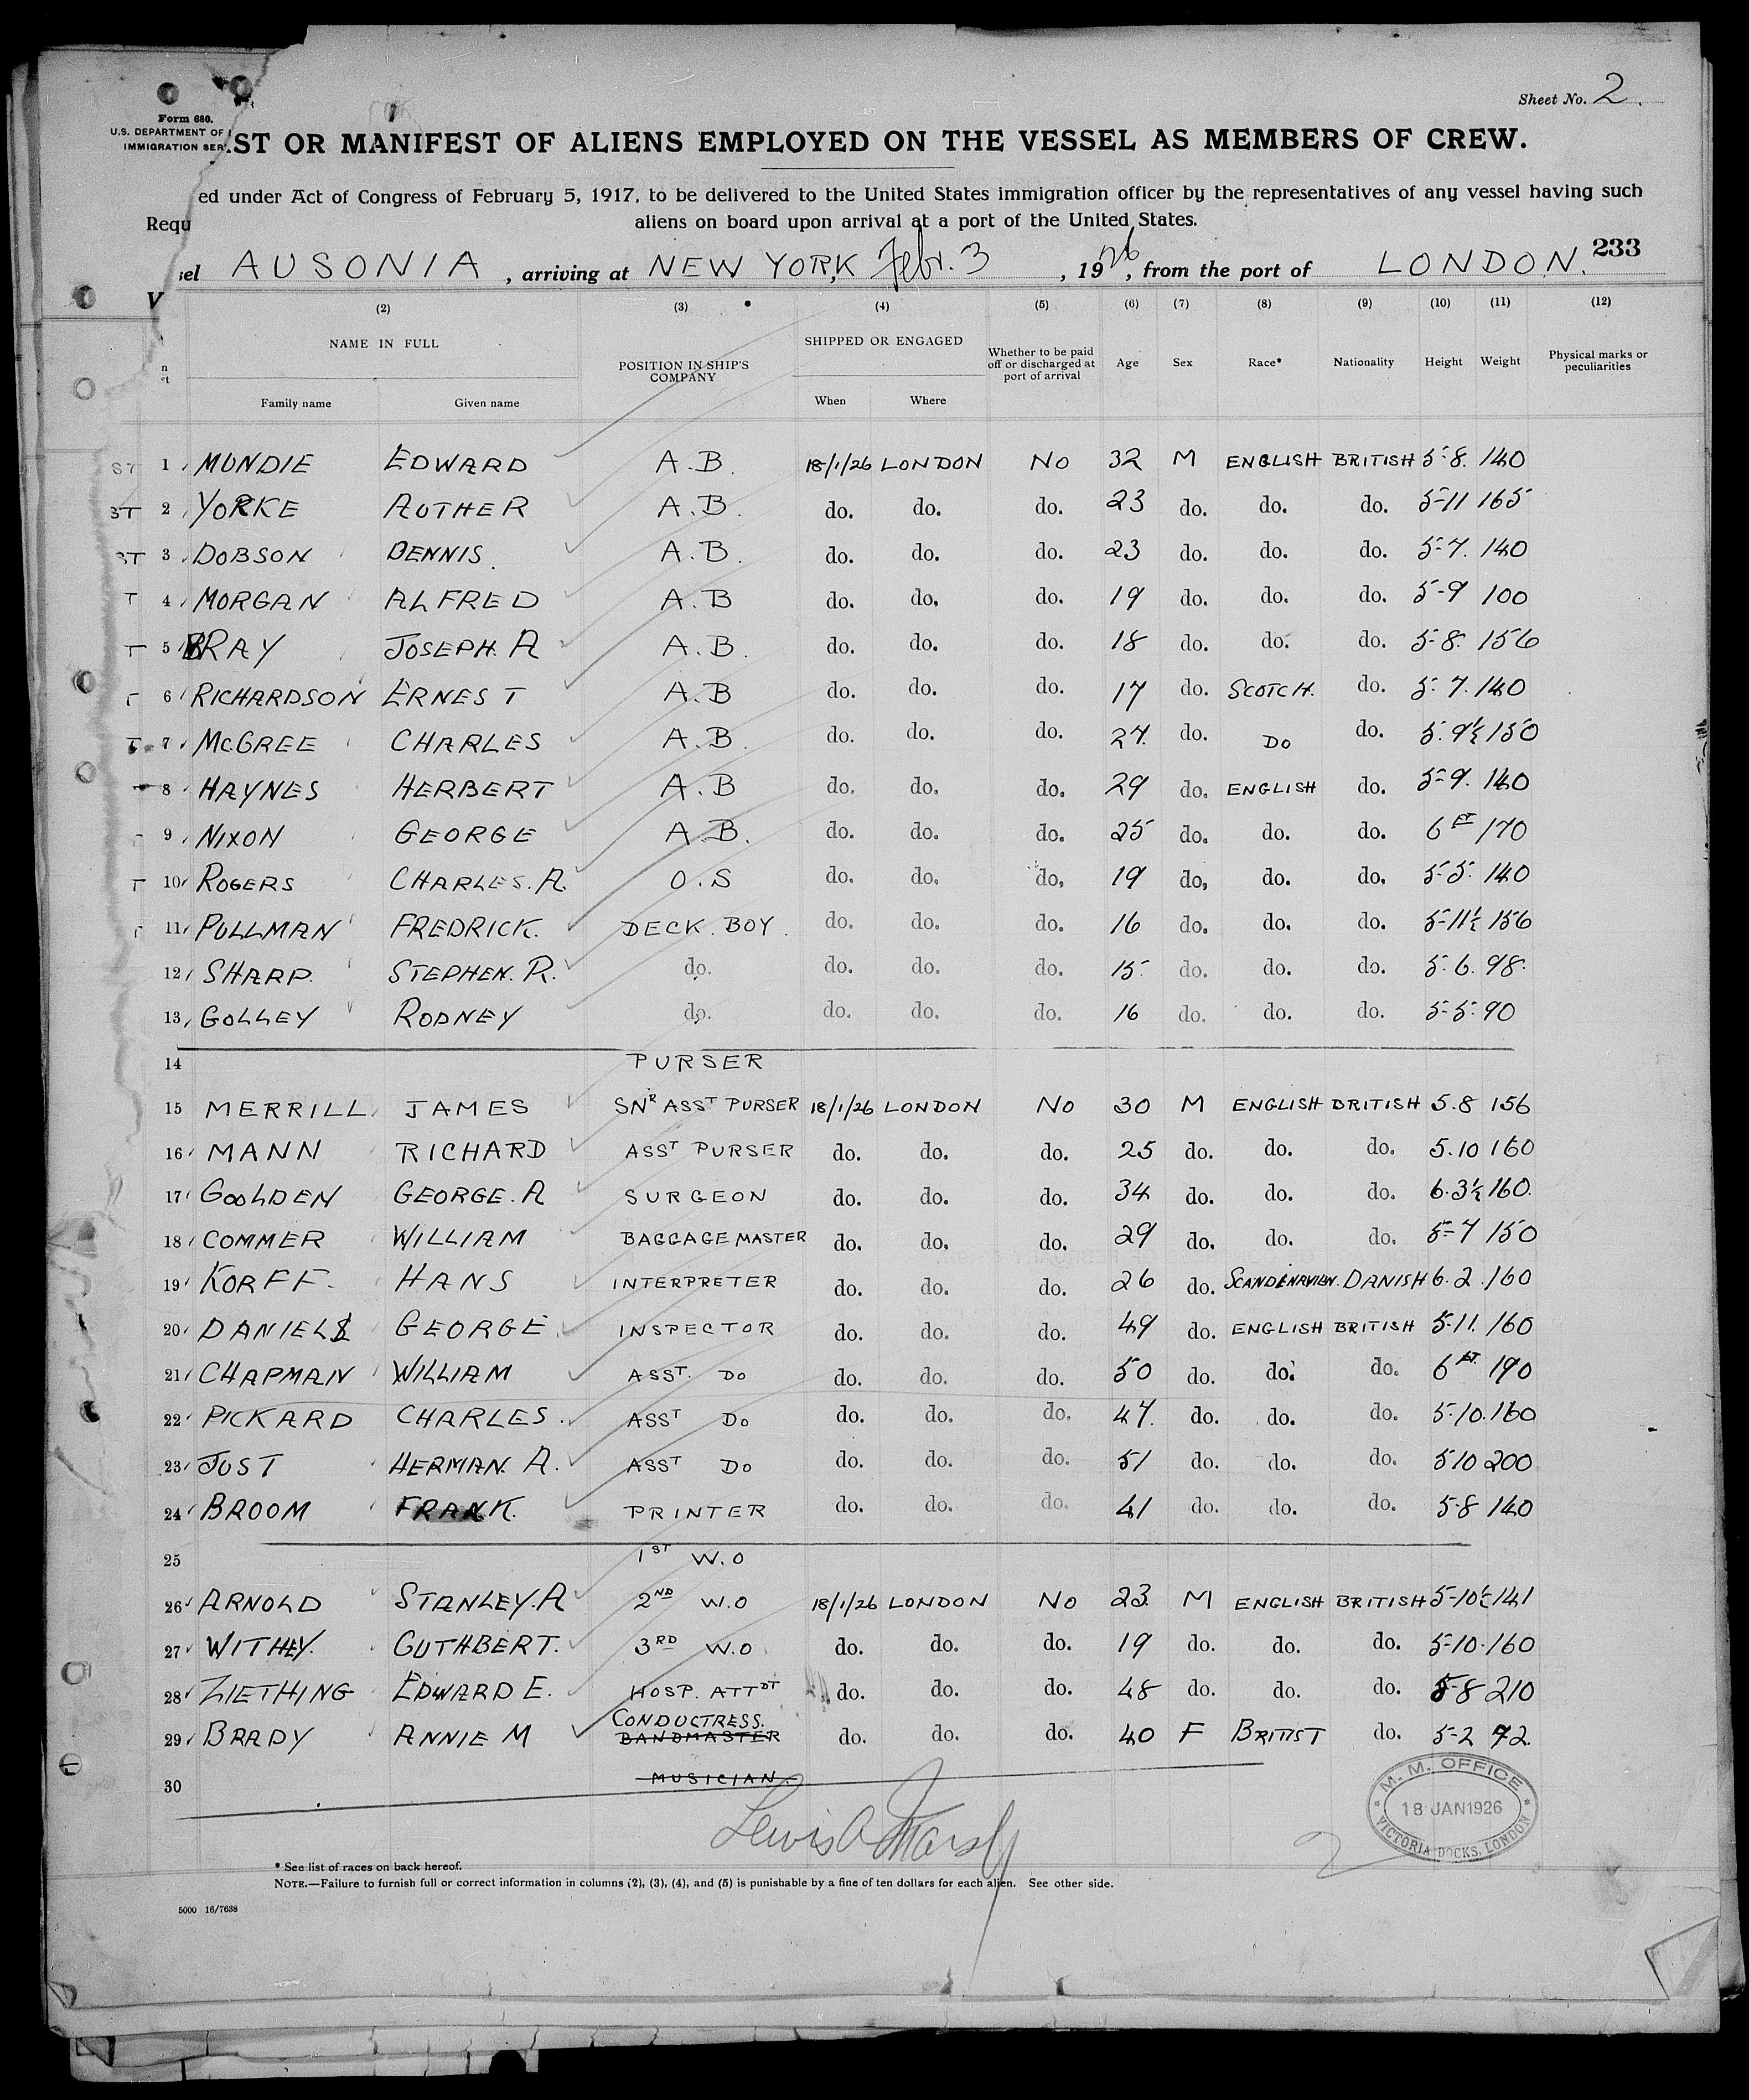 Sheet No. 2.
Form 680.
U.S. DEPARTMENT OF
IMMIGRATION SER
ST OR MANIFEST OF ALIENS EMPLOYED ON THE VESSEL AS MEMBERS OF CREW.
Requ ed under Act of Congress of February 5, 1917, to be delivered to the United States immigration officer by the representatives of any vessel having such
aliens on board upon arrival at a port of the United States.
233
sel AUSONIA, arriving at NEW YORK, Febr. 3, 1926, from the port of LONDON.
V (2) (3) (4) (5) (6) (7) (8) (9) (10) (11) (12)
NAME IN FULL POSITION IN SHIP'S COMPANY SHIPPED OR ENGAGED Whether to be paid off or discharged at port of arrival Age Sex Race* Nationality Height Weight Physical marks or peculiarities
Family name Given name When Where
ST 1 MUNDIE EDWARD A.B. 18/1/26 LONDON NO 32 M ENGLISH BRITISH 5-8. 140
ST 2 YORKE AUTHER A.B. do. do. do. 23 do. do. do. 5-11 165
ST 3 DOBSON DENNIS. A.B. do. do. do. 23 do. do. do. 5-7. 140
T 4 MORGAN ALFRED A.B do. do. do. 19 do. do. do. 5-9 100
T 5 BRAY JOSEPH. A A.B. do. do. do. 18 do. do. do. 5-8. 156
T 6 RICHARDSON ERNEST A.B do. do. do. 17 do. SCOTCH. do. 5-7. 140
T 7 McGREE CHARLES A.B. do. do. do. 27. do. DO do. 5.9½ 150
8 HAYNES HERBERT A.B do. do. do. 29 do. ENGLISH do. 5-9. 140
9 NIXON GEORGE A.B. do. do. do. 25 do. do. do. 6 FT 170
T 10 ROGERS CHARLES. A. O.S do. do. do. 19 do. do. do. 5-5. 140
11 PULLMAN FREDRICK. DECK. BOY. do. do. do. 16 do. do. do. 5-11½ 156
12 SHARP. STEPHEN. R. do. do. do. do. 15. do. do. do. 5.6. 98.
13 GOLLEY RODNEY do. do. do. do. 16 do. do. do. 5-5. 90
14 PURSER
15 MERRILL JAMES SNR ASST PURSER 18/1/26 LONDON NO 30 M ENGLISH BRITISH 5.8 156
16 MANN RICHARD ASST PURSER do. do. do. 25 do. do. do. 5.10 160
17 GOOLDEN GEORGE. A SURGEON do. do. do. 34 do. do. do. 6.3½ 160.
18 COMMER WILLIAM BAGGAGE MASTER do. do. do. 29 do. do. do. 5-7 150
19 KORFF. HANS INTERPRETER do. do. do. 26 do. SCANDENAVIEN. DANISH 6.2. 160
20 DANIELS GEORGE. INSPECTOR do. do. do. 49 do. ENGLISH BRITISH 5-11. 160
21 CHAPMAN WILLIAM ASST. DO do. do. do. 50 do. do. do. 6 FT. 190
22 PICKARD CHARLES. ASST DO do. do. do. 47. do. do. do. 5-10. 160
23 JUST HERMAN. A. ASST DO do. do. do. 51 do. do. do. 5 10 200
24 BROOM FRANK. PRINTER do. do. do. 41 do. do. do. 5-8 140
25 1ST W.O
26 ARNOLD STANLEY. A 2ND W.O 18/1/26 LONDON NO 23. M ENGLISH BRITISH 5-10½ 141
27 WITHEY. CUTHBERT. 3RD W.O do. do. do. 19 do. do. do. 5-10. 160
28 ZIETHING EDWARD E. HOSP. ATTDT do. do. do. 48 do. do. do. 5-8 210
CONDUCTRESS.
29 BRADY ANNIE M BANDMASTER do. do. do. 40 F BRITIST do. 5-2 72.
30 MUSICIAN
M. M. OFFICE
18 JAN 1926
VICTORIA DOCKS, LONDON
Lewis A Marsh
2
* See list of races on back hereof.
NOTE.—Failure to furnish full or correct information in columns (2), (3), (4), and (5) is punishable by a fine of ten dollars for each alien. See other side.
5000 16/7638